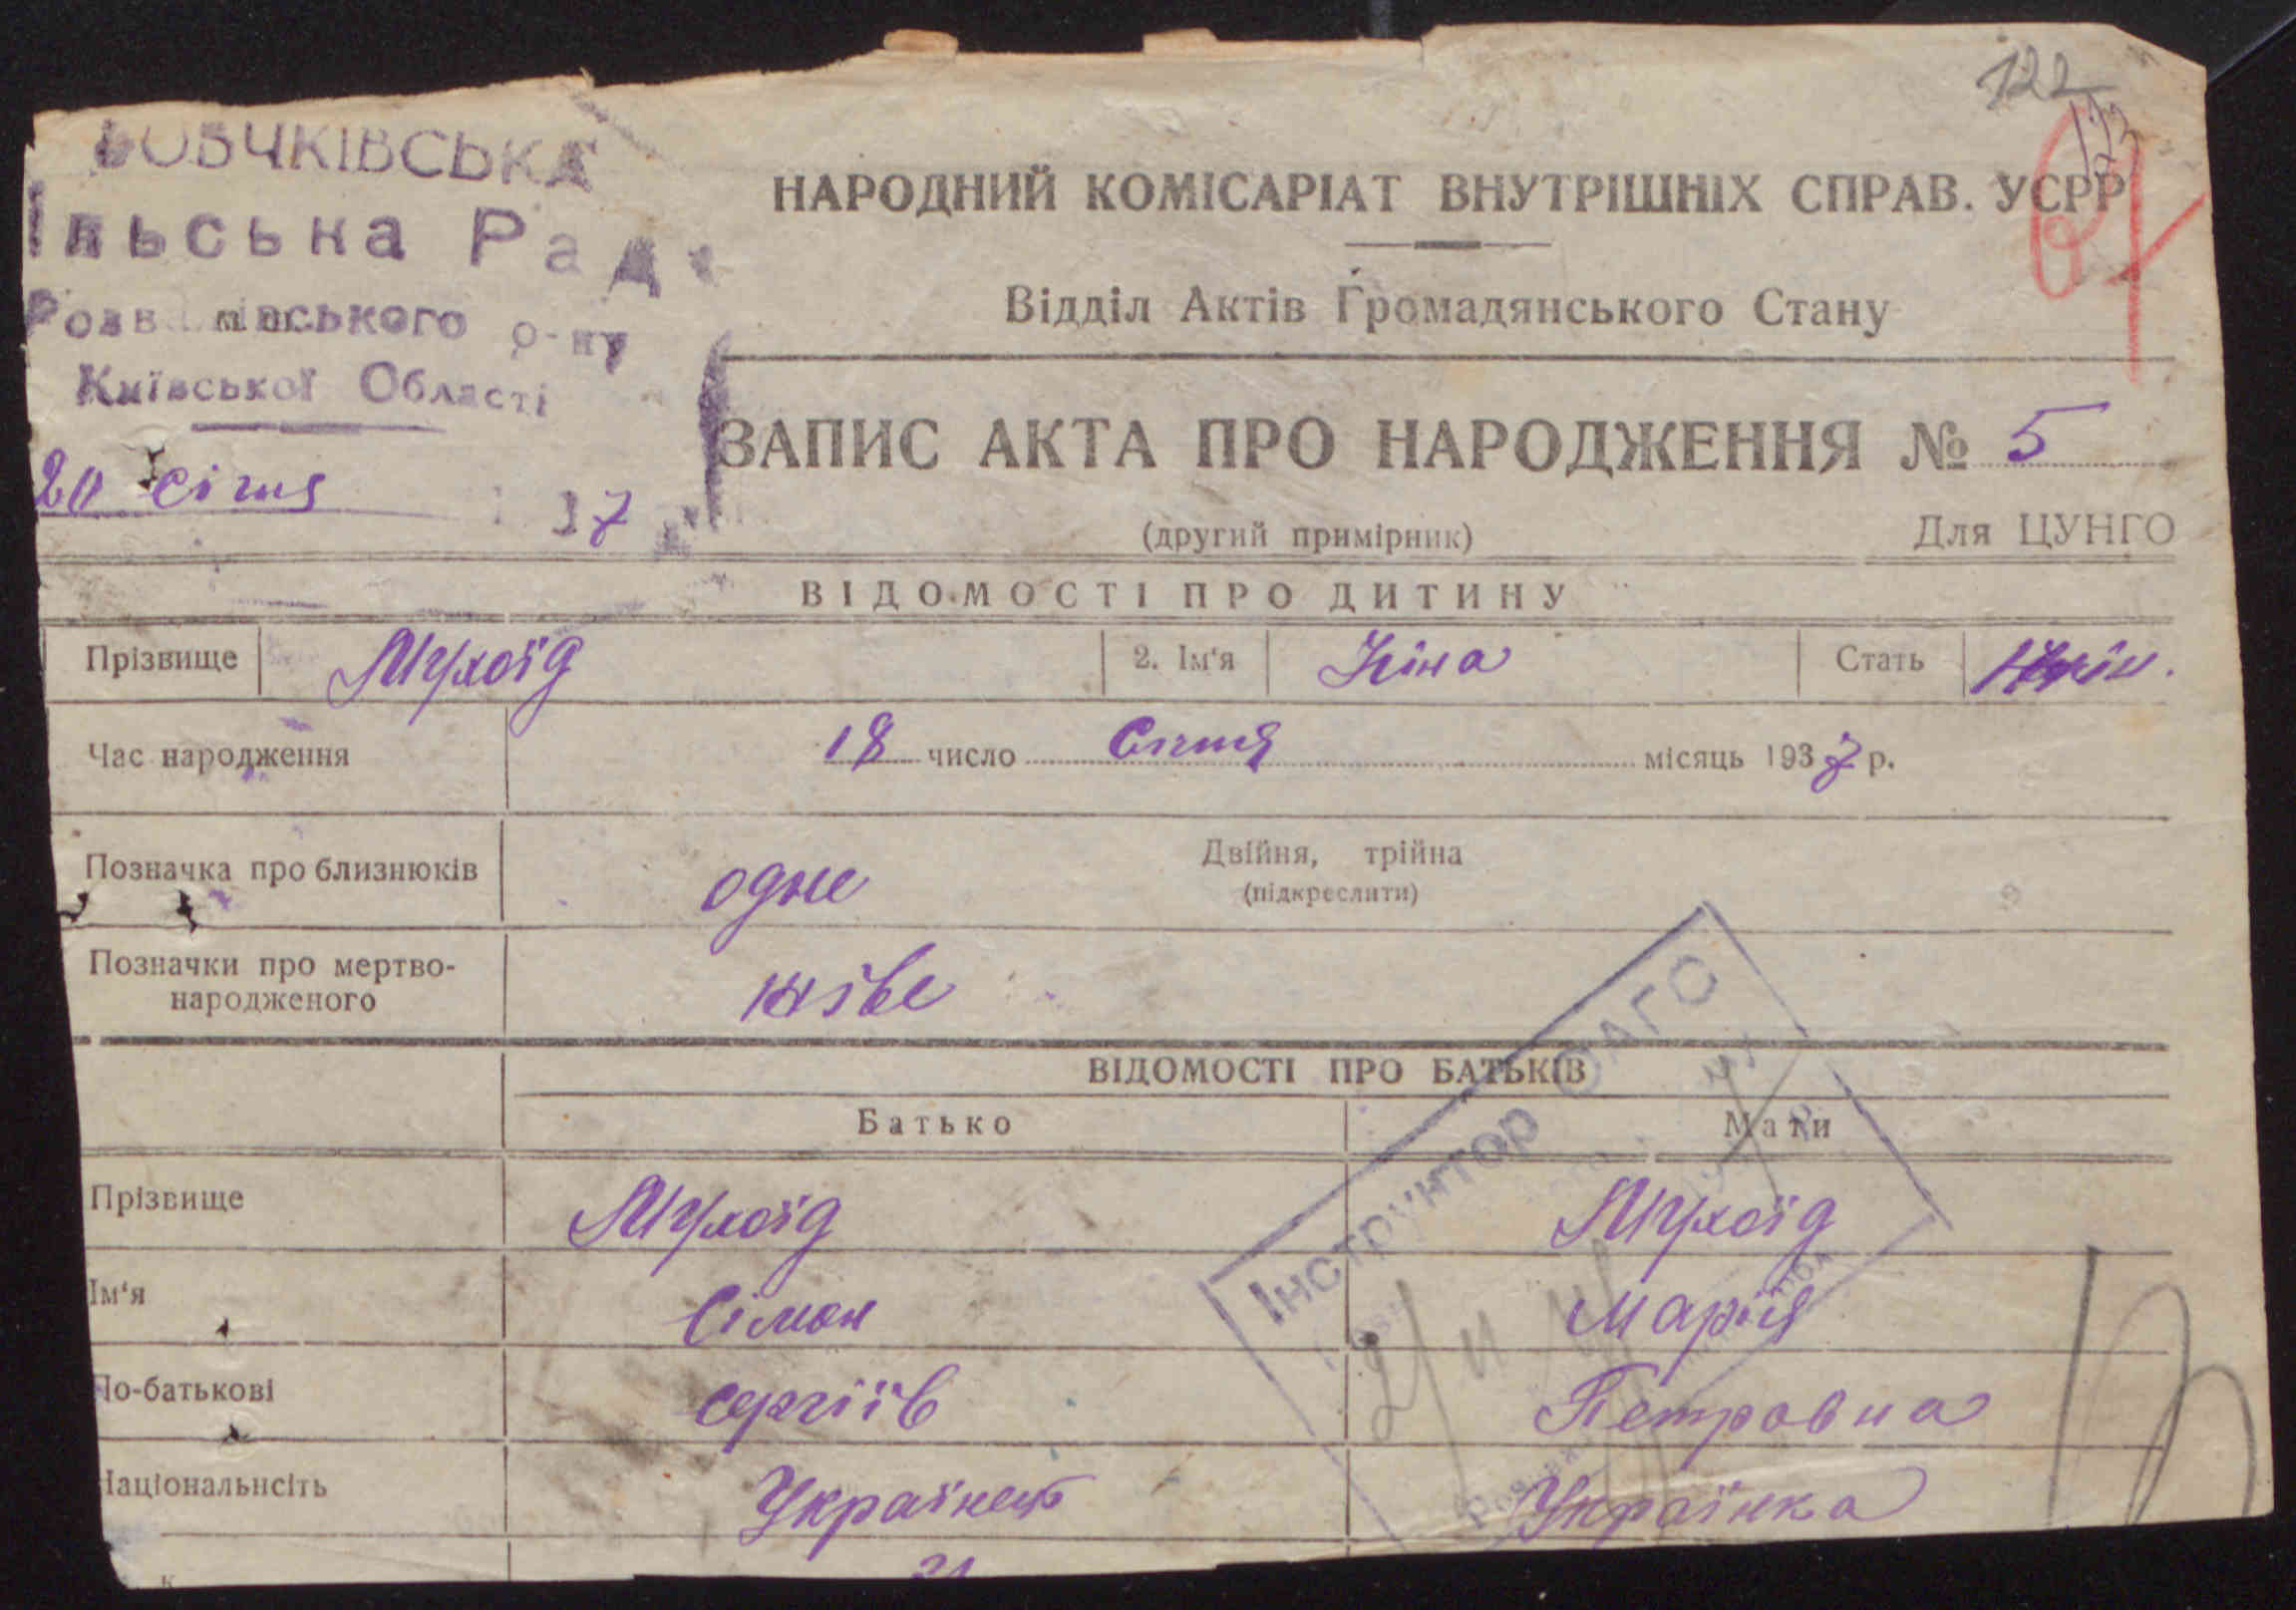 122
БОБЧКІВСЬКА
ільська Рада
Розва івського р-ну
Київської Області
20 січня 37
НАРОДНИЙ КОМІСАРІАТ ВНУТРІШНІХ СПРАВ. УСРР
Відділ Актів Громадянського Стану
ЗАПИС АКТА ПРО НАРОДЖЕННЯ № 5
(другий примірник) Для ЦУНГО
ВІДОМОСТІ ПРО ДИТИНУ
Прізвище Мухоїд 2. Ім'я Ніна Стать Жін.
Час народження 18 число Січня місяць 1937 р.
Позначка про близнюків одне Двійня, трійна
(підкреслити)
Позначки про мертво-
народженого живе
ВІДОМОСТІ ПРО БАТЬКІВ
Батько Мати
Інструнтор ОАГС
Прізвище Мухоїд Мухоїд
Ім'я Сімон Марія
По-батькові сергіїв Петровна
Національнсіть Українець Українка